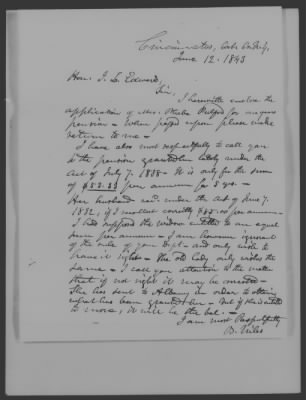 Cincinnatus, Cort. County,
June 12. 1843
Hon. J. L. Edwards,
Sir,
I herewith enclose the
application of Mrs. Phebe for
pension - When passed upon please make
return to me -
I have also most respectfully to call you
to the pension granted her lately under the
Act of July 7. 1838 - It is only for the sum
of $53.33 per annum for 5 yrs. -
Her husband recd. under the Act of June 7.
1832, if I recollect correctly per annum -
I had supposed the widow entitled to an equal
sum per annum - I am however ignorant
of the rule of your Dept - and only wish to
have it right - The old lady only wishes the
same - I call your attention to the matter
that if not right it may be corrected -
She has sent to Albany in order to obtain
what has been granted her - But if she is entitled
to more, it will be the bal. -
I am most Respectfully
B.